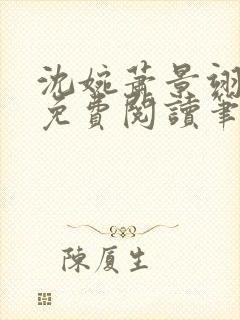 沈婉蕭景翊
免費閱讀筆
陳厦生